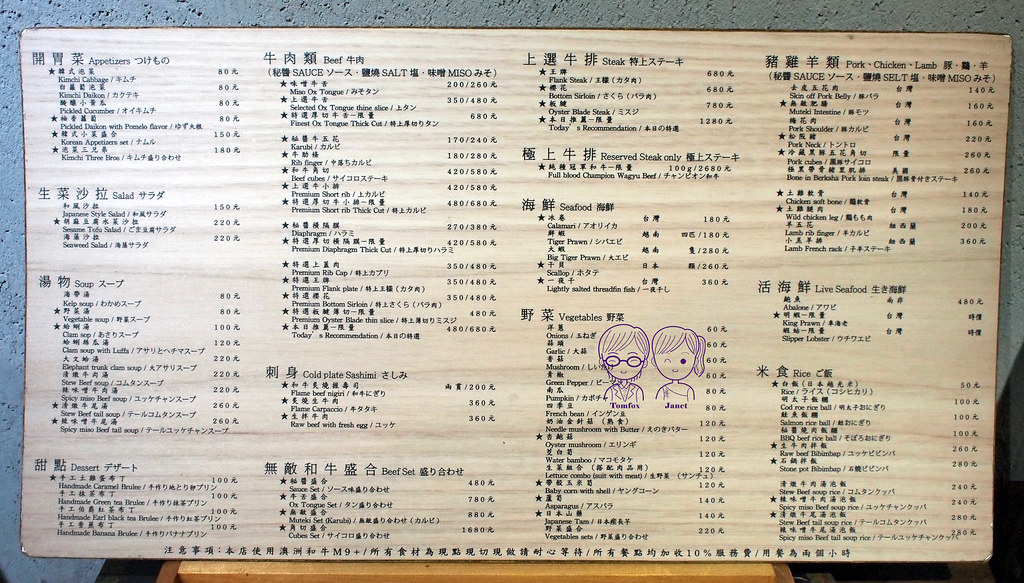 開胃菜 Appetizers つけもの
★韓式泡菜 80元
Kimchi Cabbage / キムチ
白蘿蔔泡菜 80元
Kimchi Daikon / カクテキ
醃醃小黃瓜 80元
Pickled Cucumber / オイキムチ
★柚香蘿蔔 80元
Pickled Daikon with Pomelo flavor / ゆず大根
★韓式小菜盛合 150元
Korean Appetizers set / ナムル
★泡菜三兄弟 180元
Kimchi Three Bros / キムチ盛り合わせ
生菜沙拉 Salad サラダ
和風沙拉 150元
Japanese Style Salad / 和風サラダ
★胡麻豆腐水菜沙拉 220元
Sesame Tofu Salad / ごま豆腐サラダ
海藻沙拉 220元
Seaweed Salad / 海藻サラダ
湯物 Soup スープ
海帶湯 80元
Kelp soup / わかめスープ
★野菜湯 80元
Vegetable soup / 野菜スープ
★蛤蜊湯 100元
Clam sop / あさりスープ
★蛤蜊絲瓜湯 120元
Clam soup with Luffa / アサリとヘチマスープ
大文蛤湯 220元
Elephant trunk clam soup / 大アサリスープ
清燉牛肉湯 220元
Stew Beef soup / コムタンスープ
辣味噌牛肉湯 220元
Spicy miso Beef soup / ユッケジャンスープ
★清燉牛尾湯 260元
Stew Beef tail soup / テールコムタンスープ
★辣味噌牛尾湯 260元
Spicy miso Beef tail soup / テールユッケジャンスープ
甜點 Dessert デザート
★手工土雞蛋布丁 100元
Handmade Caramel Brulee / 手作り地とり卵プリン
手工抹茶布丁 100元
Handmade Green tea Brulee / 手作り抹茶プリン
手工伯爵紅茶布丁 100元
Handmade Earl black tea Brulee / 手作り紅茶プリン
手工香蕉布丁 100元
Handmade Banana Brulee / 手作りバナナプリン
牛肉類 Beef 牛肉
(秘醬 SAUCE ソース・鹽燒 SALT 塩・味噌 MISO みそ)
★味噌牛舌 200/260元
Miso Ox Tongue / みそタン
★上選牛舌 350/480元
Selected Ox Tongue thine slice / 上タン
★特選厚切牛舌–限量 680元
Finest Ox Tongue Thick Cut / 特上厚切りタン
★秘醬牛五花 170/240元
Karubi / カルビ
★牛肋條 180/280元
Rib finger / 中落ちカルビ
★和牛角切 420/580元
Beef cubes / サイコロステーキ
★上選牛小排 420/580元
Premium Short rib / 上カルビ
★特選厚切牛小排–限量 480/680元
Premium Short rib Thick Cut / 特上カルビ
★秘醬橫隔膜 270/380元
Diaphragm / ハラミ
★特選厚切橫隔膜–限量 420/580元
Premium Diaphragm Thick Cut / 特上厚切りハラミ
★特選上蓋肉 350/480元
Premium Rib Cap / 特上カブリ
★特選王牌 350/480元
Premium Flank plate / 特上王様 (カタ肉)
★特選櫻花 350/480元
Premium Bottom Sirloin / 特上さくら (バラ肉)
★特選板腱薄切–限量 480/680元
Premium Oyster Blade thin slice / 特上薄切りミスジ
★本日推薦–限量 480/680元
Today's Recommendation / 本日の特選
刺身 Cold plate Sashimi さしみ
★和牛炙燒握壽司 兩貫/200元
Flame beef nigiri / 和牛にぎり
★炙燒生牛肉 360元
Flame Carpaccio / キタタキ
★生拌牛肉 360元
Raw beef with fresh egg / ユッケ
無敵和牛盛合 Beef Set 盛り合わせ
★秘醬盛合 480元
Sauce Set / ソース味盛り合わせ
★牛舌盛合 780元
Ox Tongue Set / タン盛り合わせ
★無敵盛合 880元
Muteki Set (Karubi) / 無敵盛り合わせ (カルビ)
★角切盛合 1680元
Cubes Set / サイコロ盛り合わせ
上選牛排 Steak 特上ステーキ
★王牌 680元
Flank Steak / 王様 (カタ肉)
★櫻花 680元
Bottom Sirloin / さくら (バラ肉)
★板腱 780元
Oyster Blade Steak / ミスジ
★本日推薦–限量 1280元
Today's Recommendation / 本日の特選
極上牛排 Reserved Steak only 極上ステーキ
★純種冠軍和牛–限量 100g/2680元
Full blood Champion Wagyu Beef / チャンピオン和牛
海鮮 Seafood 海鮮
★冰卷 台灣 180元
Calamari / アオリイカ
鮮蝦 越南 四匹/180元
Tiger Prawn / シバエビ
大蝦 越南 隻/280元
Big Tiger Prawn / 大エビ
★干貝 日本 顆/260元
Scallop / ホタテ
★一夜干 台灣 360元
Lightly salted threadfin fish / 一夜干し
野菜 Vegetables 野菜
洋蔥 60元
Onions / 玉ねぎ
蒜頭 60元
Garlic / 大蒜
香菇 60元
Mushroom / しいたけ
青椒 60元
Green Pepper / ピー
南瓜 80元
Pumpkin / カボチ
四季豆 80元
French bean / インゲン豆
奶油金針菇 (熟食) 120元
Needle mushroom with Butter / えのきバター
★杏鮑菇 120元
Oyster mushroom / エリンギ
茭白筍 120元
Water bamboo / マコモタケ
生菜組合 (搭配肉品用) 120元
Lettuce combo (suit with meat) / 生野菜 (サンチュ)
★帶殼玉米筍 120元
Baby corn with shell / ヤングコーン
★蘆筍 140元
Asparagus / アスパラ
★日本山藥 140元
Japanese Tam / 日本産長芋
野菜盛合 220元
Vegetables sets / 野菜盛り合わせ
Tomfox Janet
豬雞羊類 Pork、Chicken、Lamb 豚・鶏・羊
(秘醬 SAUCE ソース・鹽燒 SELT 塩・味噌 MISO みそ)
去皮五花肉 台灣 140元
Skin off Pork Belly / 豚バラ
★無敵肥腸 台灣 160元
Muteki Intestine / 豚モツ
梅花肉 台灣 160元
Pork Shoulder / 豚カルビ
★松阪豬 台灣 220元
Pork Neck / トントロ
★冷藏黑豚五花角切 限量 260元
Pork cubes / 黒豚サイコロ
★極黑帶骨豬里肌排 美國 260元
Bone in Berksha Pork loin steak / 黒豚骨付きステーキ
★土雞軟骨 台灣 140元
Chicken soft bone / 鶏軟骨
★土雞腿肉 台灣 180元
Wild chicken leg / 鶏もも肉
羊五花 紐西蘭 200元
Lamb rib finger / 羊カルビ
小羔羊排 紐西蘭 360元
Lamb French rack / 子羊ステーキ
活海鮮 Live Seafood 生き海鮮
鮑魚 南非 480元
Abalone / アワビ
★明蝦–限量 台灣 時價
King Prawn / 車海老
蝦蛄–限量 台灣 時價
Slipper Lobster / ウチワエビ
米食 Rice ご飯
★白飯 (日本越光米) 50元
Rice / ライス (コシヒカリ)
明太子飯糰 100元
Cod roe rice ball / 明太子おにぎり
鮭魚飯糰 100元
Salmon rice ball / 鮭おにぎり
秘醬燒肉飯糰 100元
BBQ beef rice ball / そぼろおにぎり
★生牛肉拌飯 260元
Raw beef Bibimbap / ユッケビビンバ
★石鍋拌飯 280元
Stone pot Bibimbap / 石焼ビビンバ
清燉牛肉湯泡飯 240元
Stew Beef soup rice / コムタンクッパ
★辣味噌牛肉湯泡飯 240元
Spicy miso Beef soup rice / ユッケジャンクッパ
★清燉牛尾湯泡飯 280元
Stew Beef tail soup rice / テールコムタンクッパ
★辣味噌牛尾湯泡飯 280元
Spicy miso Beef tail soup rice / テールユッケジャンクッパ
注意事項：本店使用澳洲和牛M9+/所有食材為現點現切現做請耐心等待/所有餐點均加收10%服務費/用餐為兩個小時